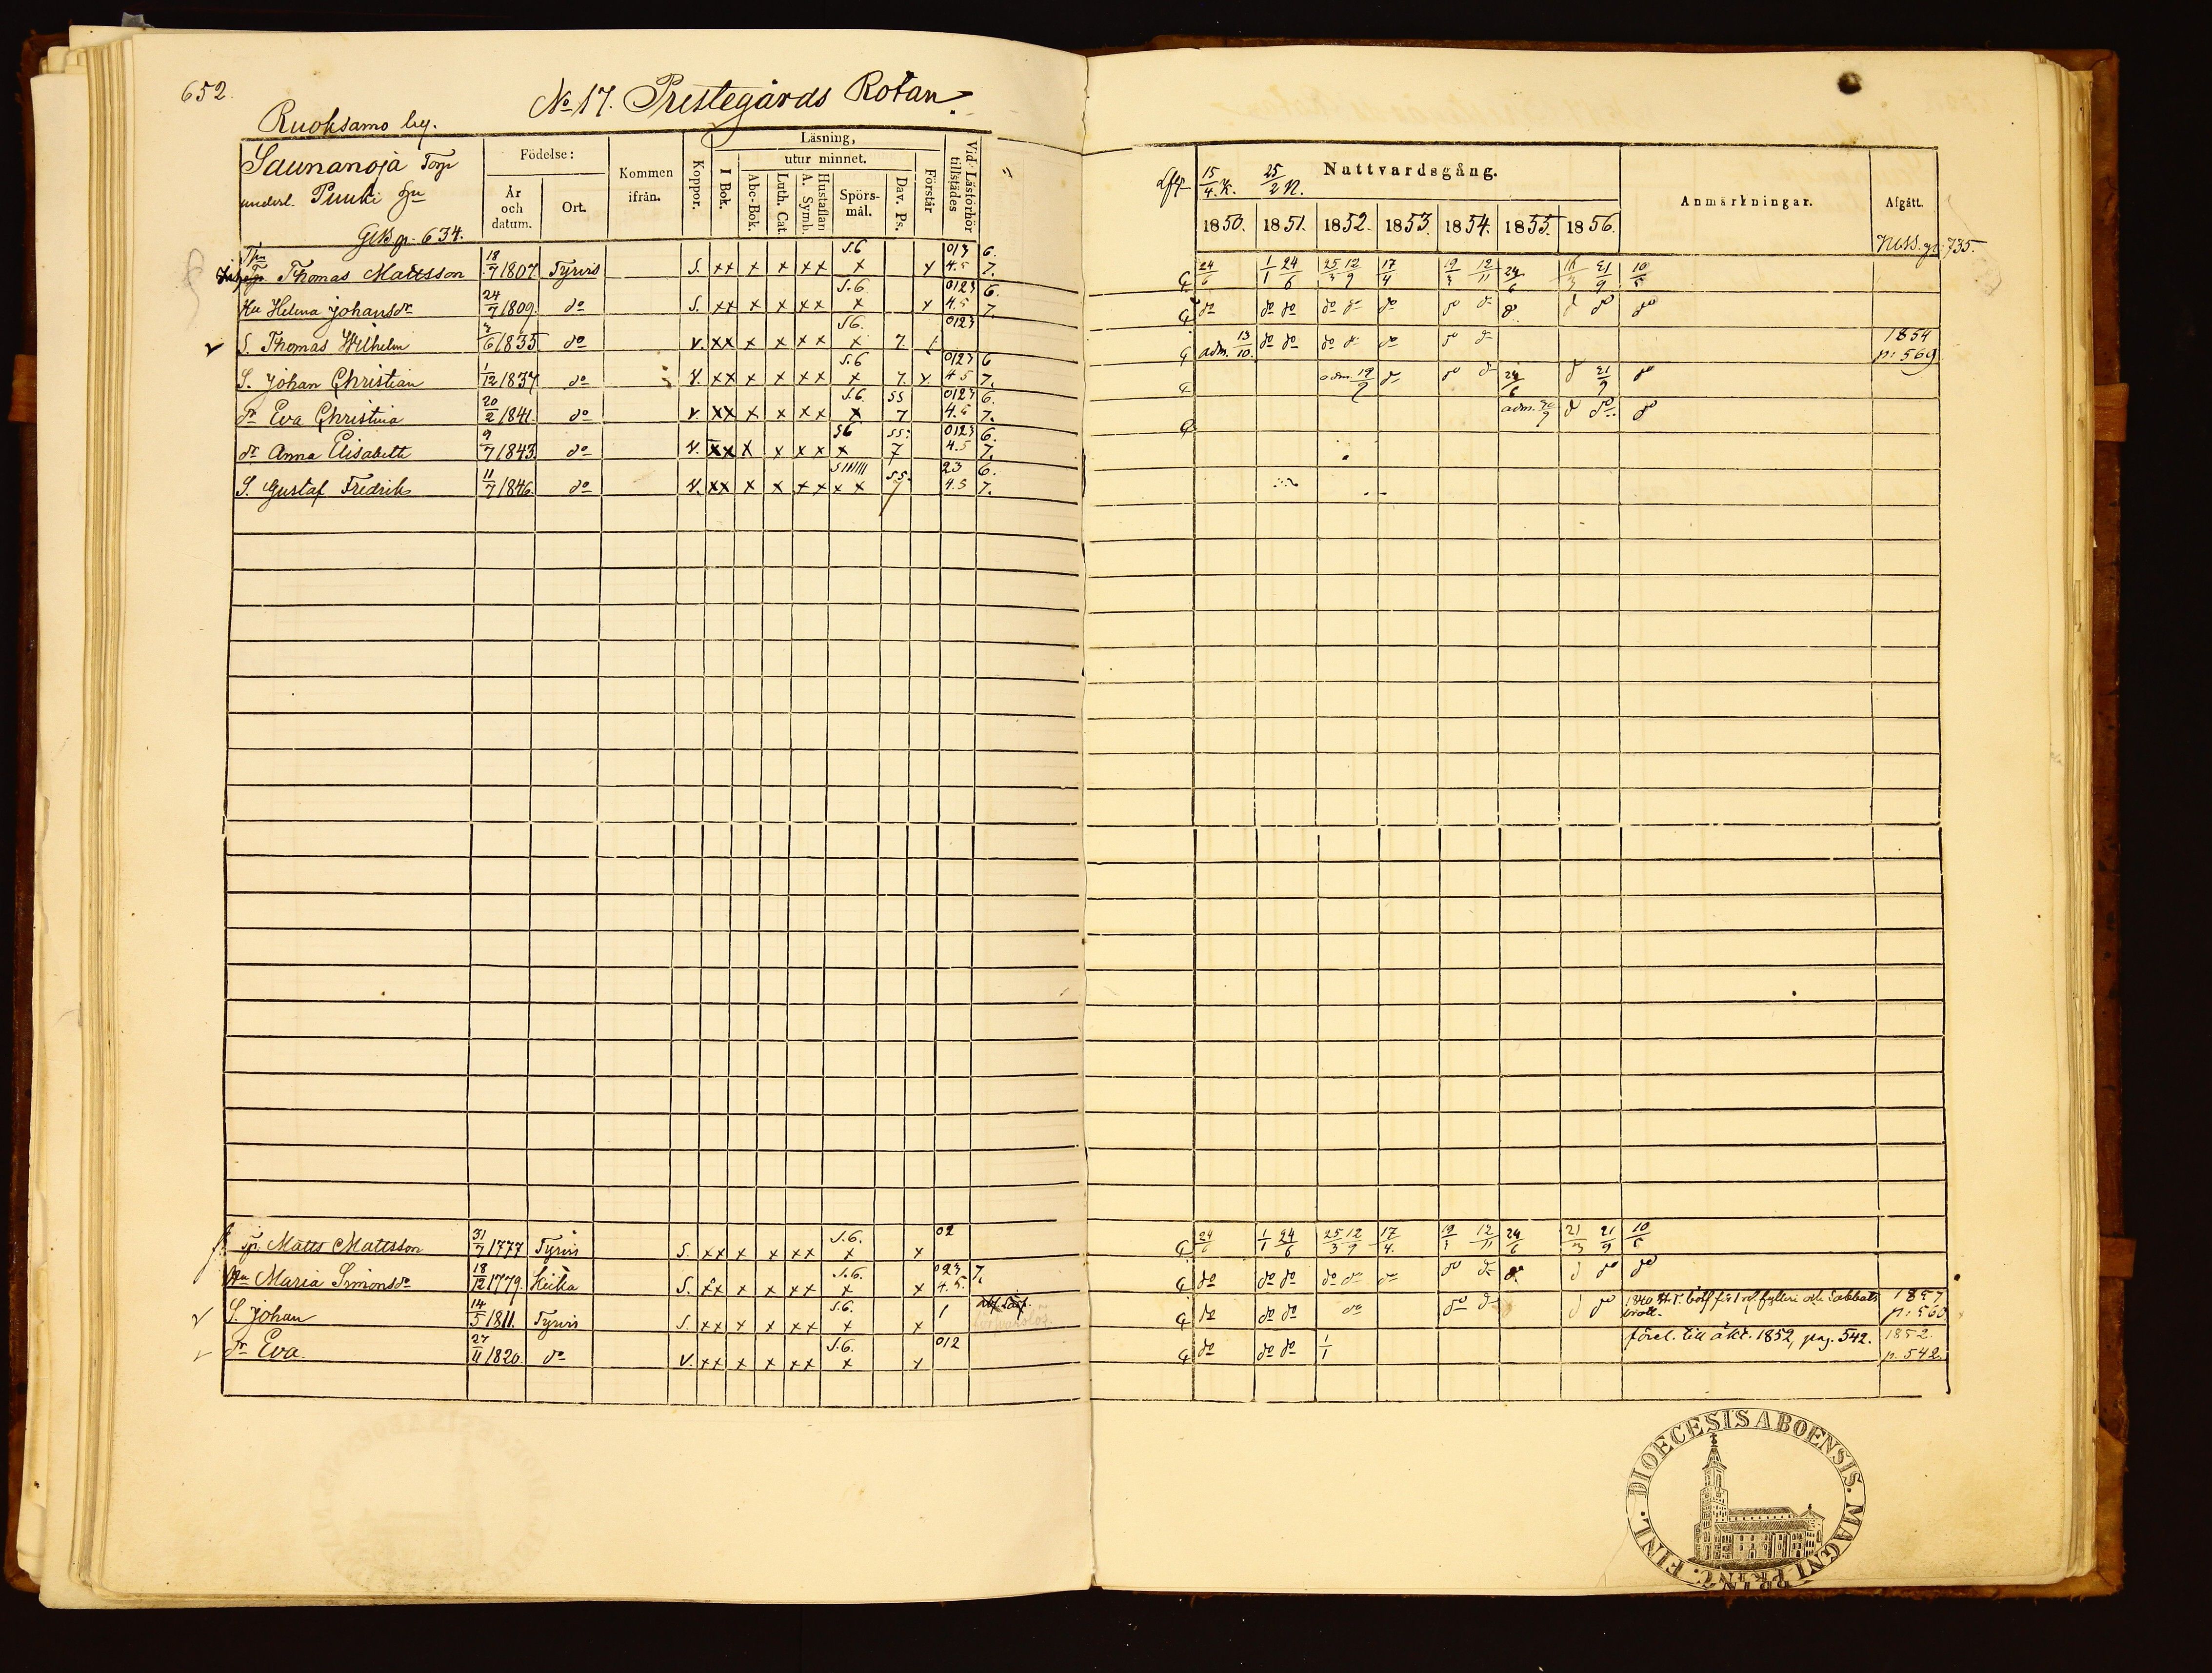 652.
No 17. Prestegårds Rotan.
Ruoksamo by.
Saunanoja Torp
underl. Puuki
GKB. p. 634.
Födelse:
År och datum.
Ort.
Kommen ifrån.
Koppor.
Läsning,
I Bok.
utur minnet.
Abc-Bok.
Luth. Cat.
Hustaflan A. Symb.
Spörsmål.
Dav. Ps.
Förstår
Vid Läsförhör tillstädes
15/4. K. 25/2 N. Nattvardsgång.
1850. 1851. 1852. 1853. 1854. 1855. 1856.
Anmärkningar.
Afgått.
NKB. p. 735.
Thomas Mattsson 18/7 1807 Tyrvis S. xx x x xx S.6 x x 013 4.5 6. 7. 24/6 1/1 24/6 25/3 12/9 17/4 19/3 12/11 24/6 21/9 10/5
Hu Helena Johansdr 24/7 1809. do S. xx x x xx S.6 x x 0123 4.5 6. 7. do do do do do do do do do do do do
S. Thomas Wilhelm 6 1835 do V. xx x x xx S6. x 7 0123 adm. 13/10. do do do do do do do 1854 p: 569
S. Johan Christian 1/12 1837 do V. xx x x xx S.6 x 7. x 0123 4 5 6 7. adm. 19/9 do do do 24/6 do 21/9 do
dr Eva Christina 20/2 1841. do V. xx x x xx S.6. x 55 7 0123 4.5 6. 7. adm. do do do
dr Anna Elisabeth 9/7 1843. do V. xx x x xx S6 x 55: 7 0123 4.5 6. 7.
S. Gustaf Fredrik 11/7 1846. do V. xx x x xx x x 55. 7 23 4.5 6. 7.
Tp. Matts Mattsson 31/7 1777 Tyrvis S. xx x x xx S.6. x x 02 24/6 1/1 24/6 25/3 12/9 17/4. 19/3 12/11 24/6 21/3 21/9 10/5
Hu Maria Simonsdr 18/12 1779. Keikia S. xx x x xx S.6. x x 023 4.5. 7. do do do do do do do do do do do do
S. Johan 14/5 1811. Tyrvis S. xx x x xx S.6. x x 1 do do do do do do do do
1840 bött för fylleri och sabbats brott. 1857 p: 560
dr Eva. 27/11 1820. do V. xx x x xx S.6. x x 012 do do do 1/1
förel. till äkt. 1852, pag. 542. 1852. p. 542.
DIOECESIS ABOENSIS. MAGNI PRINC. FINL.